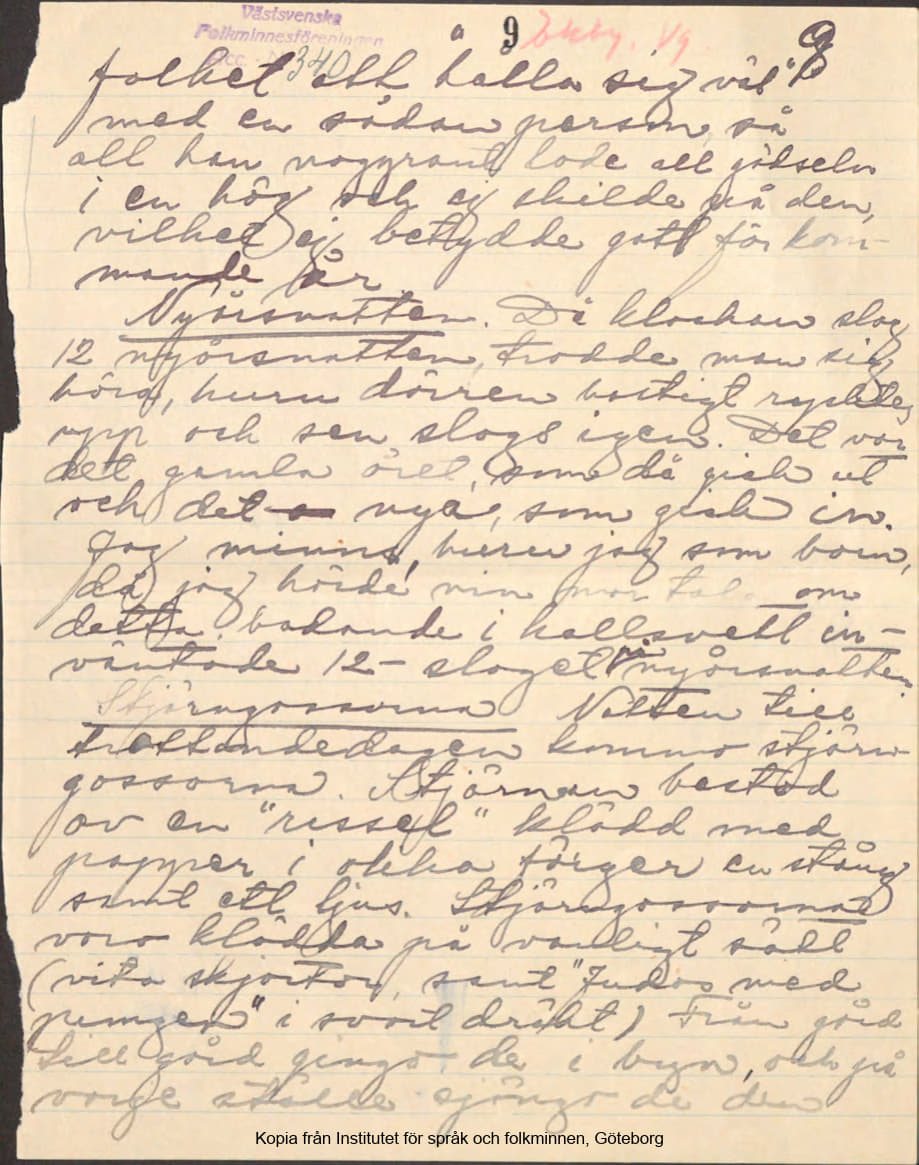 Västsvenska
Folkminnesföreningen
Acc. N:r 340
9 Vg 9
folket att "hålla sig väl"
med en sådan person, så
att han noggrant lade all gödseln
i en hög och ej skilde på den,
vilket ej betydde gott för kom-
mande år.
Nyårsnatten. Då klockan slog
12 nyårsnatten, trodde man sig
höra, huru dörren hastigt rycktes
upp och sen slogs igen. Det var
det gamla året, som då gick ut
och det nya, som gick in.
Jag minns, huru jag som barn,
då jag hörde min mor tala om
detta, badande i kallsvett in-
väntade 12-slaget på nyårsnatten.
Stjärngossarna Natten till
trettondedagen kommo stjärn-
gossarna. Stjärnan bestod
av en "rissel" klädd med
papper i olika färger en stång
samt ett ljus. Stjärngossarna
voro klädda på vanligt sätt
(vita skjortor, samt "Judas med
pungen" i svart dräkt) Från gård
till gård gingo de i byn, och på
varje ställe sjöngo de den
Kopia från Institutet för språk och folkminnen, Göteborg